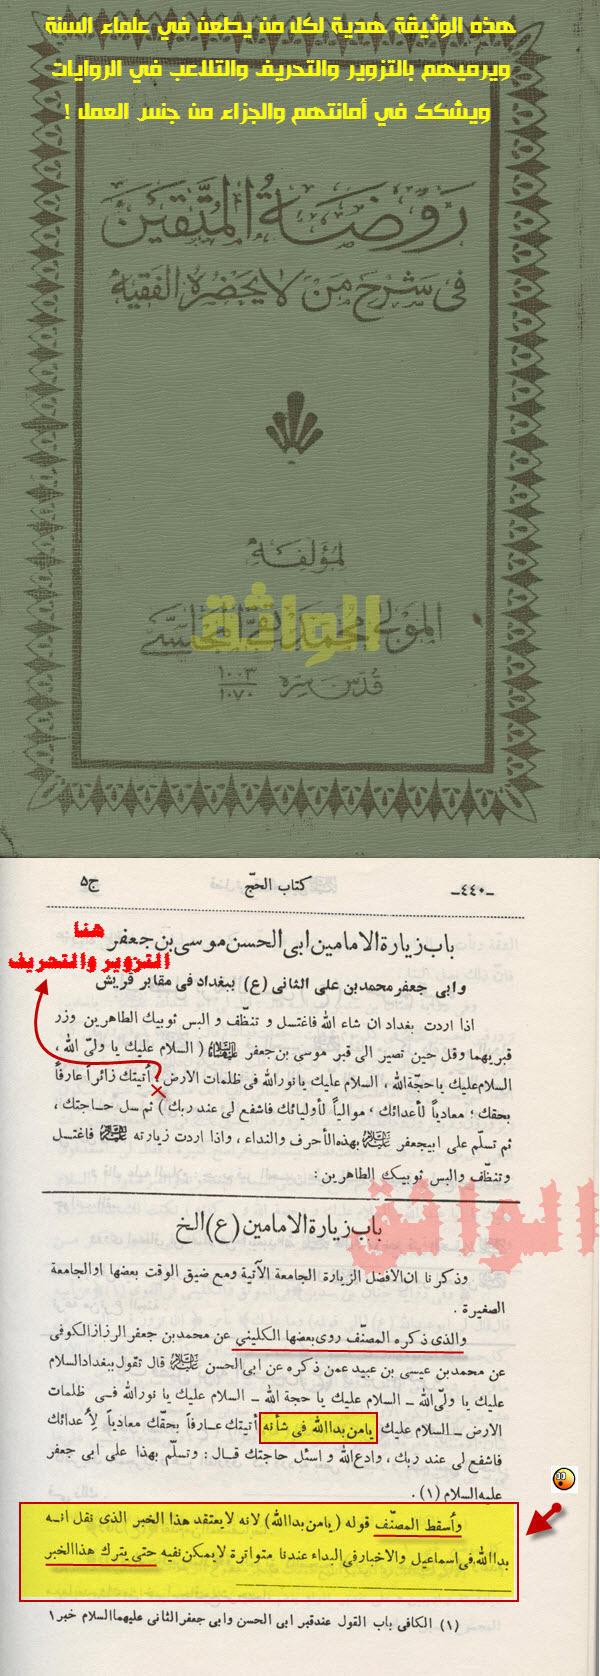 هذه الوثيقة هدية لكل من يطعن في علماء السنة
ويرميهم بالتزوير والتحريف والتلاعب في الروايات
ويشكك في أمانتهم والجزاء من جنس العمل !
روضة المتقين
فى شرح من لا يحضره الفقيه
لمؤلفه
المولى محمد تقى المجلسى
الواثق
قدس سره ١٠٠٣
١٠٧٠
-٤٤٠- كتاب الحج ج٥
هنا
التزوير والتحريف
باب زيارة الامامين ابى الحسن موسى بن جعفر
وابى جعفر محمد بن على الثانى (ع) ببغداد فى مقابر قريش
اذا اردت بغداد ان شاء الله فاغتسل و تنظّف و البس ثوبيك الطاهرين وزر
قبريهما وقل حين تصير الى قبر موسى بن جعفر ( السلام عليك يا ولىّ الله ،
السلام عليك يا حجّة الله ، السلام عليك يا نور الله فى ظلمات الارض ، أتيتك زائراً عارفاً
بحقك ، معادياً لأعدائك ، موالياً لأوليائك فاشفع لى عند ربك ) ثم سل حاجتك ،
ثم تسلّم على ابيجعفر عليه السلام بهذه الأحرف والنداء ، واذا اردت زيارته عليه السلام فاغتسل
وتنظّف والبس ثوبيك الطاهرين :
الواثق
باب زيارة الامامين (ع) الخ
وذكرنا ان الافضل الزيارة الجامعة الآتية ومع ضيق الوقت بعضها او الجامعة
الصغيرة .
والذى ذكره المصنّف روى بعضها الكلينى عن محمد بن جعفر الرزاز الكوفى
عن محمد بن عيسى بن عبيد عمن ذكره عن ابى الحسن عليه السلام قال تقول ببغداد السلام
عليك يا ولىّ الله ــ السلام عليك يا حجة الله ــ السلام عليك يا نور الله فى ظلمات
الارض ــ السلام عليك يا من بدا لله فى شأنه أتيتك عارفاً بحقّك معادياً لأعدائك
فاشفع لى عند ربك ، وادع الله و اسئل حاجتك قال : وتسلّم بهذا على ابى جعفر
عليه السلام (١) .
وأسقط المصنّف قوله ( يا من بدا لله ) لانه لا يعتقد هذا الخبر الذى نقل انه
بدا لله فى اسماعيل والاخبار فى البداء عندنا متواترة لا يمكن نفيه حتى يترك هذا الخبر
(١) الكافى باب القول عند قبر ابى الحسن وابى جعفر الثانى عليهما السلام خبر ١